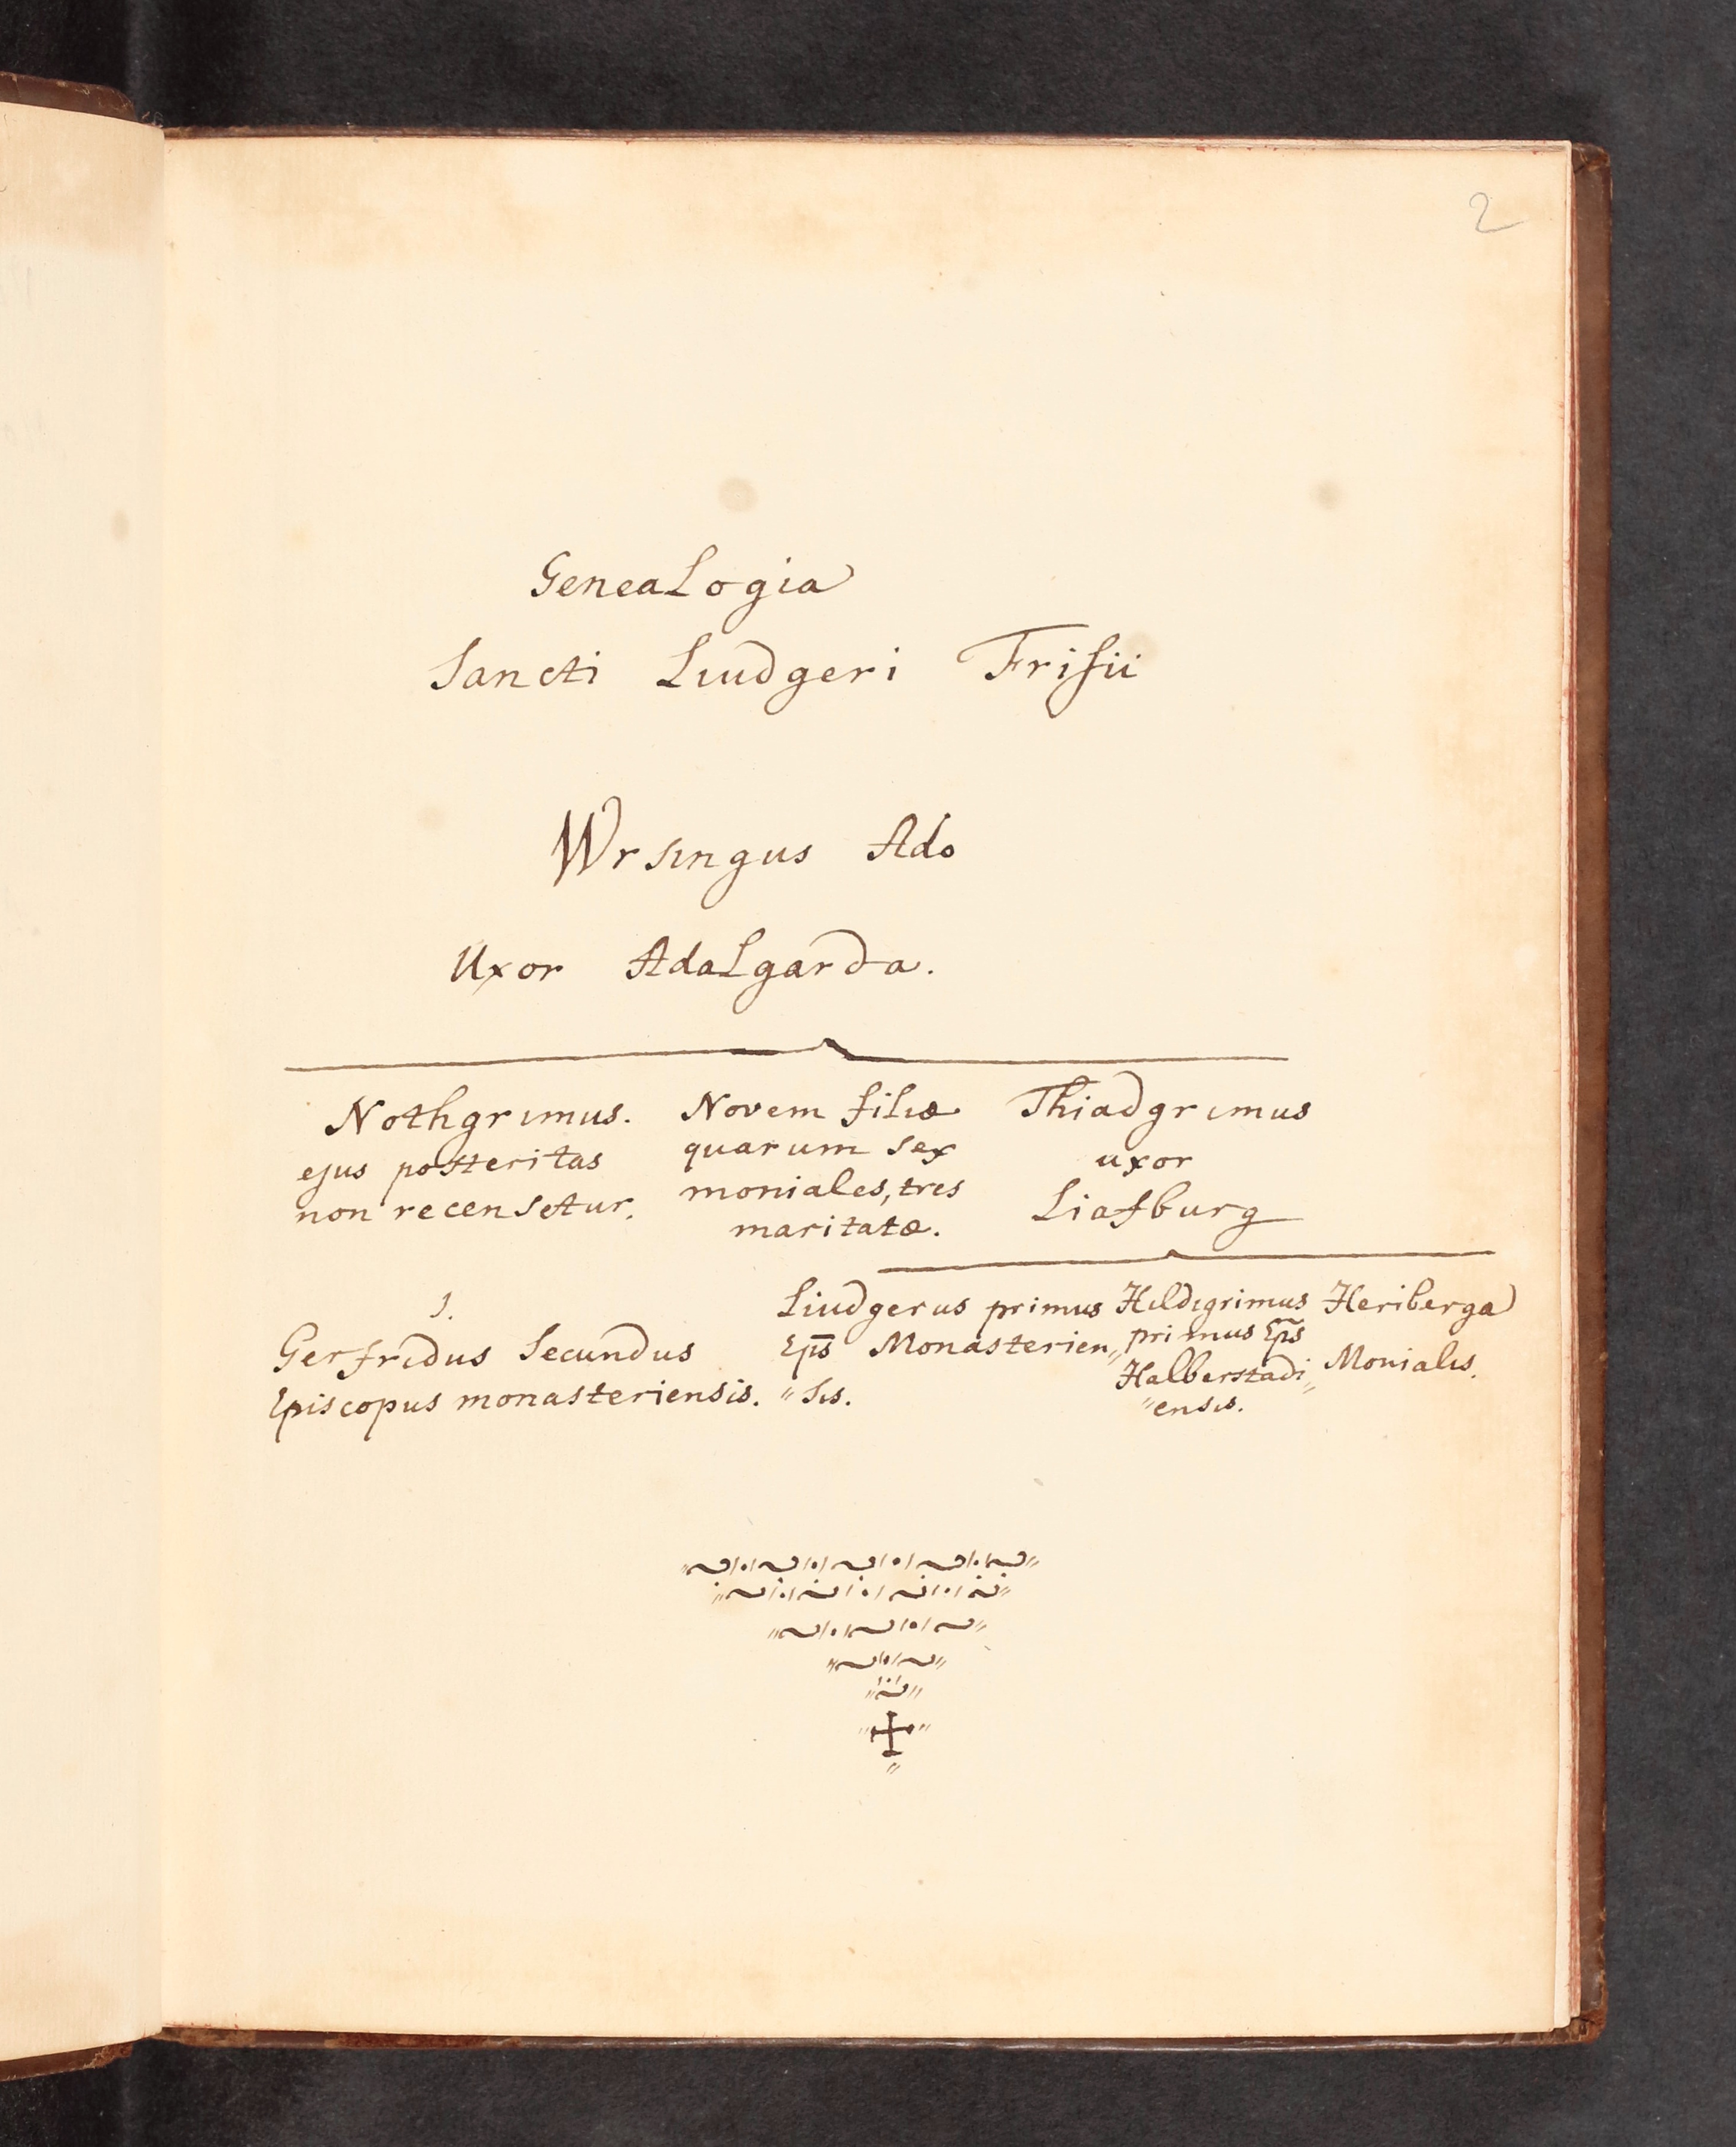 2
Genealogia
Sancti Liudgeri Frisii
Wrsingus Ado
Uxor Adalgarda.
Nothgrimus.
ejus posteritas
non recensetur.
Novem filiæ
quarum sex
moniales, tres
maritatæ.
Thiadgrimus
uxor
Liafburg
1.
Gerfridus Secundus
Episcopus monasteriensis.
Liudgerus primus
Ep̄s Monasterien„
„sis.
Hildigrimus
primus Ep̄s
Halberstadi„
„ensis.
Heriberga
Monialis.